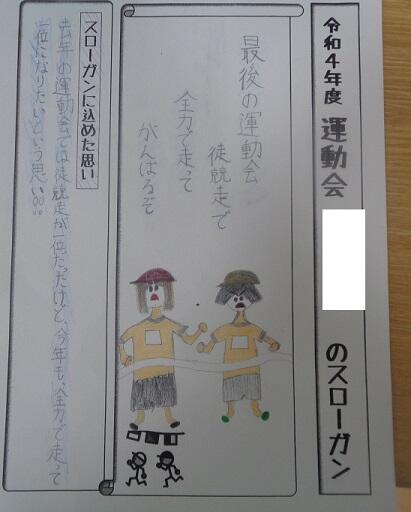 令和4年度 運動会 のスローガン
最後の運動会
徒競走で
全力で走って
がんばるぞ
スローガンに込めた思い
去年の運動会では徒競走が一位だったけど、今年も、全力で走って
一位になりたいという思い。